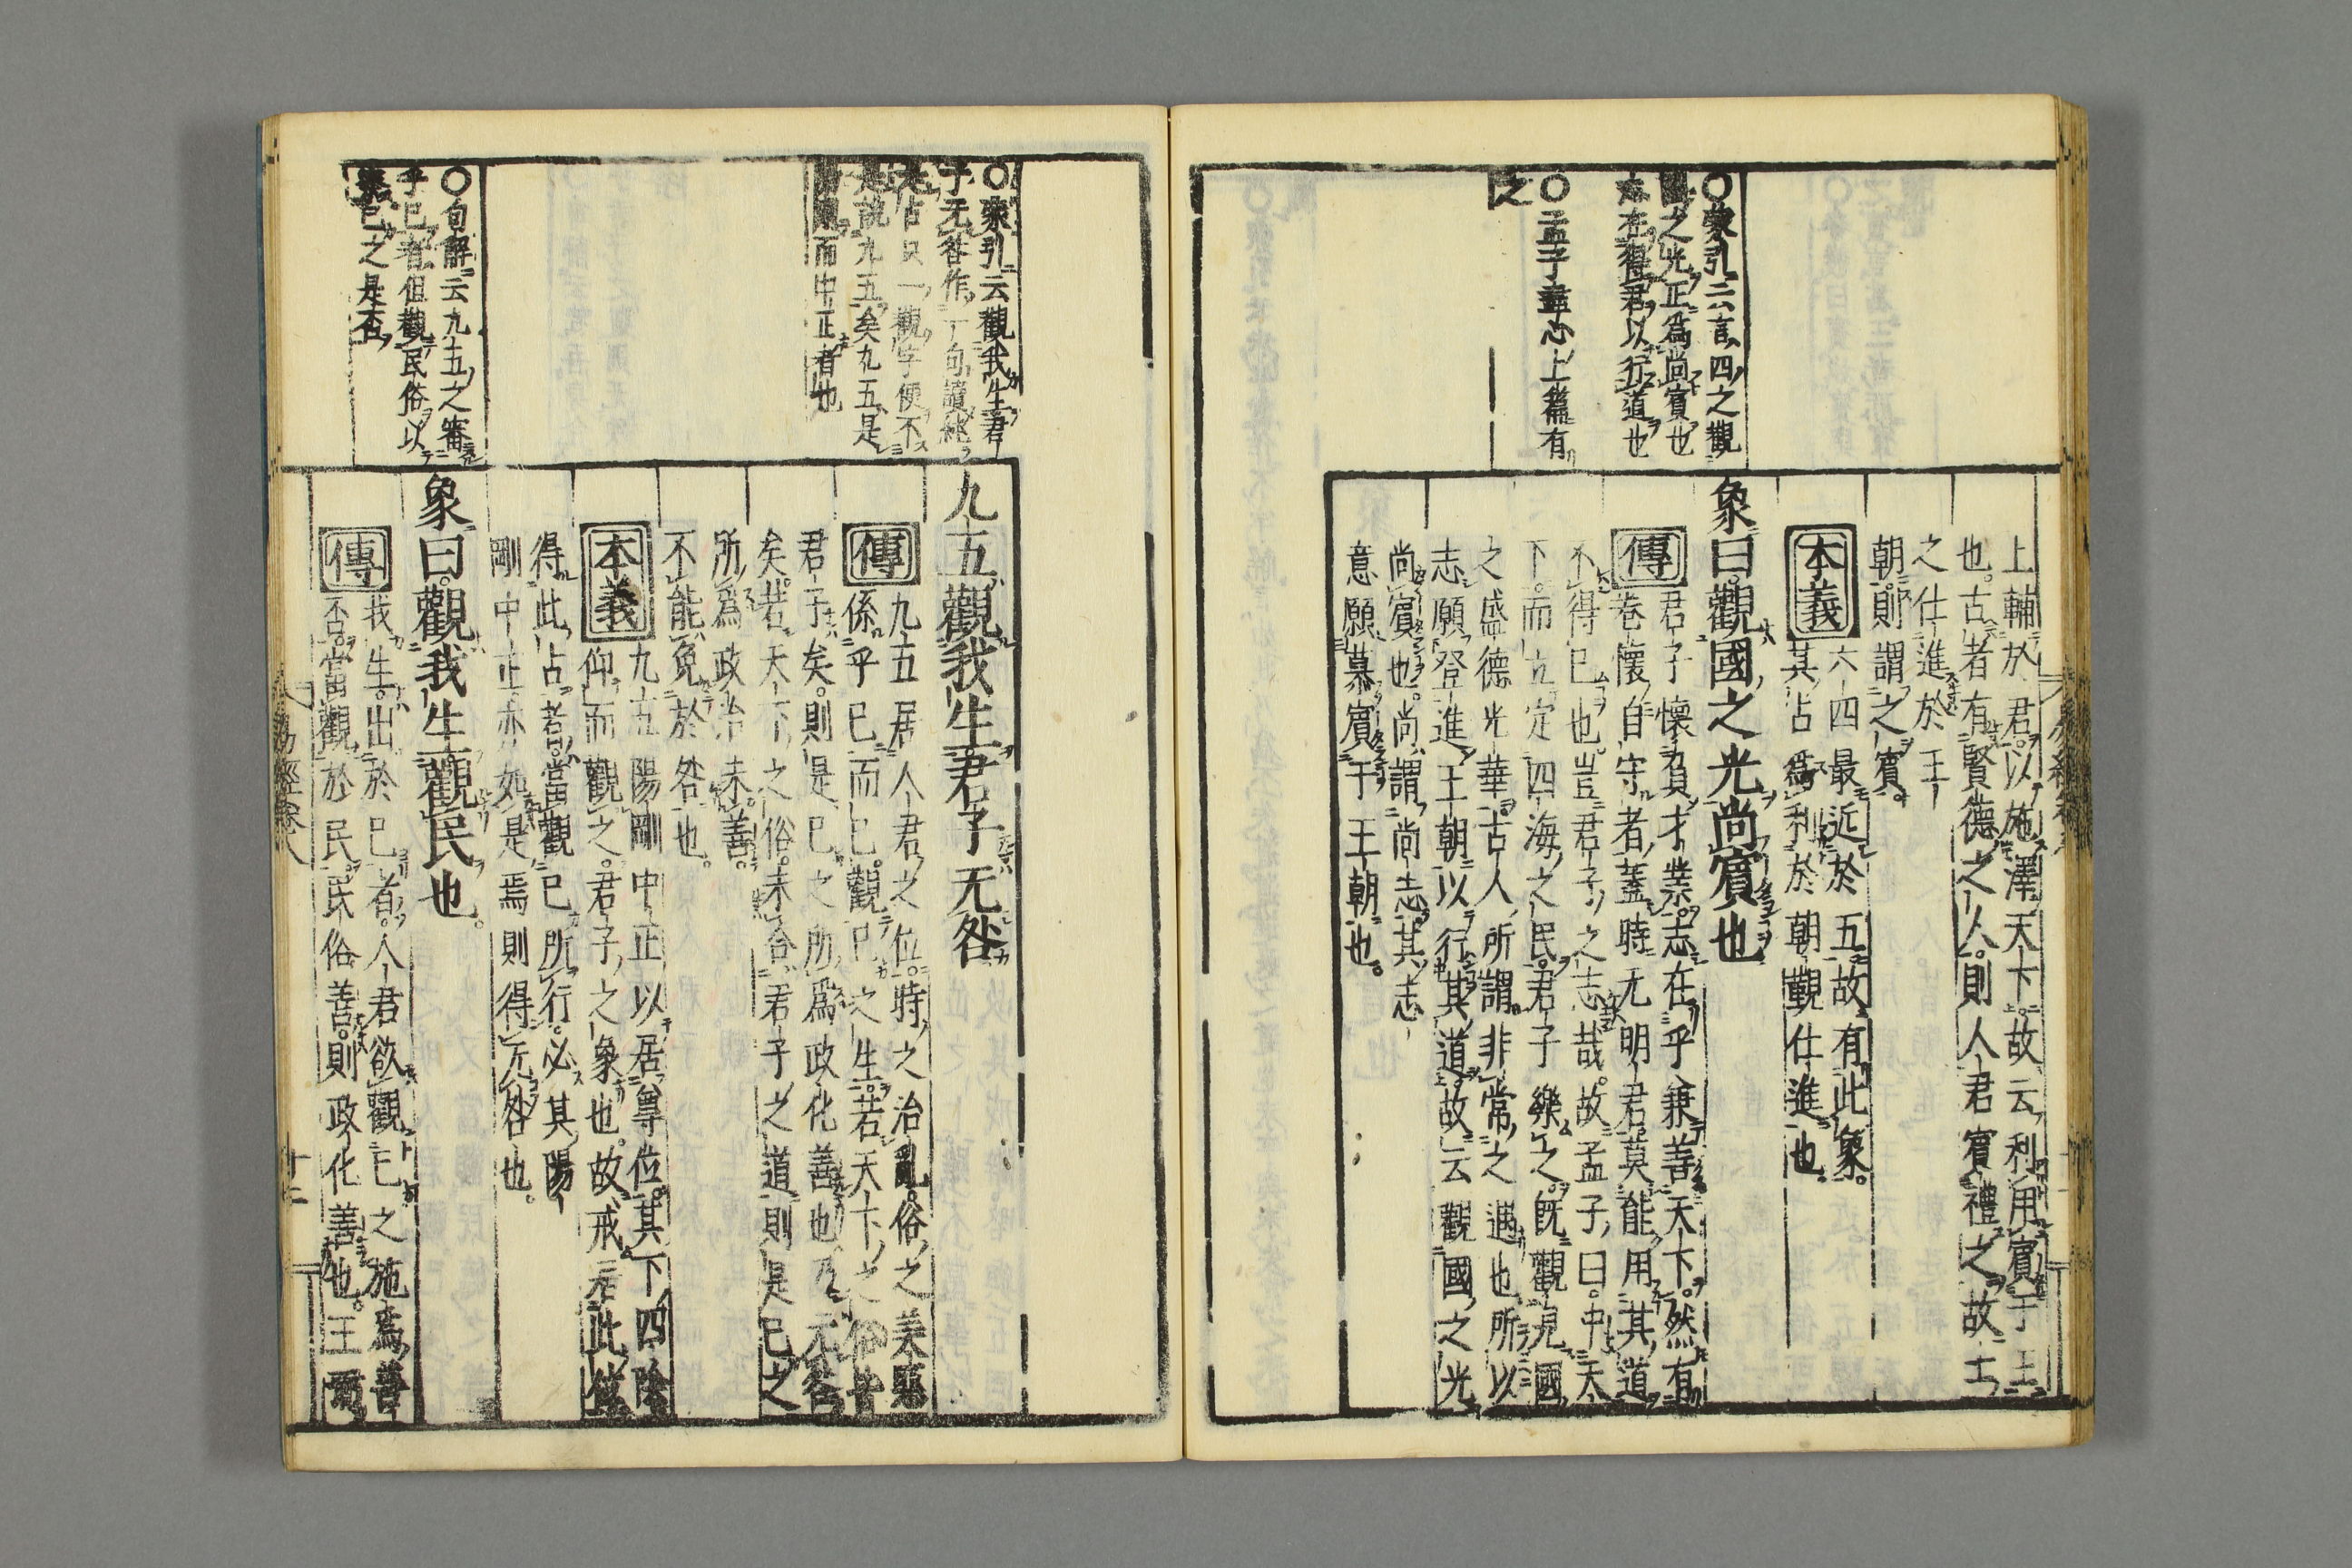 ○蒙引云言四之觀
國之光正爲尚賓也
志在得君以行道也
○孟子盡心上篇有
之
上輔於君以施澤天下故云利用賓于王
也古者有賢德之人則人君賓禮之故士
之仕進於王
朝則謂之賓
本義六四最近於五故有此象
其占爲利於朝覲仕進也
象曰觀國之光尚賓也
傳君子懷負才業志在乎兼善天下然有
卷懷自守者蓋時无明君莫能用其道
不得已也豈君子之志哉故孟子曰中天
下而立定四海之民君子樂之既觀見國
之盛德光華古人所謂非常之遇也所以
志願登進王朝以行其道故云觀國之光
尚賓也尚謂尚志其志
意願慕賓于王朝也
○蒙引云觀我生君
子无咎作一句讀
占只一觀字便不
是說九五矣九五是
而中正者也
○句解云九五之審
乎已者但觀民俗以
察已之是否
九五觀我生君子无咎
傳九五居人君之位時之治亂俗之美惡
係乎已而已觀已之生若天下之俗皆
君子矣則是已之所爲政化善也乃无咎
矣若天下之俗未合君子之道則是已之
所爲政治未善
不能免於咎也
本義九五陽剛中正以居尊位其下四陰
仰而觀之君子之象也故戒居此位
得此占者當觀已所行必其陽
剛中正亦如是焉則得无咎也
象曰觀我生觀民也
傳我生出於已者人君欲觀已之施爲善
否當觀於民民俗善則政化善也王弼
易經卷八
十二